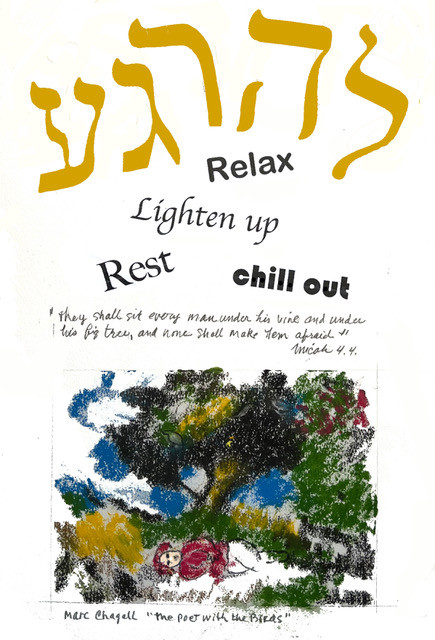 להרגע
Relax
Lighten up
Rest
chill out
"they shall sit every man under his vine and under
his fig tree, and none shall make them afraid"
Micah 4.4.
Marc Chagall "the Poet with the Birds"